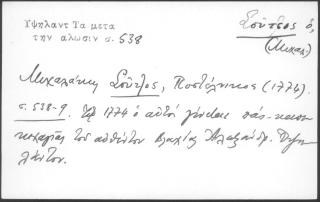 Υψηλαντ Τα μετα
την αλωσιν σ. 538
Σοῦτσος ὁ,
(Μιχαλ.)
Μιχαλάκης Σοῦτζος, Ποστέλνικος (1774).
σ. 538-9. Τῷ 1774 ὁ αὐτὸς γίνεται πας-καπου
κεχαγιᾶς τοῦ αὐθέντου Βλαχίας Ἀλεξάνδρ. Ὑψη
λάντου.